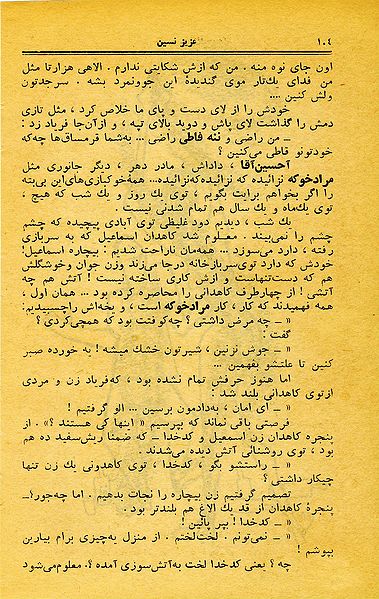 ۱۰٤ عزیز نسین
اون جای نوه منه . من که ازش شکایتی ندارم . الاهی هزارتا مثل
من فدای یك‌تار موی گندیدهٔ این جوونمرد بشه . سرجدتون
ولش کنین ....
خودش را از لای دست و پای ما خلاص کرد ، مثل تازی
دمش را گذاشت لای پاش و دوید بالای تپه ، و از آن‌جا فریاد زد :
ــ من راضی و ننه فاطی راضی ... به‌شما قرمساق‌ها چه‌که
خودتونو قاطی می‌کنین ؟
آحسین‌آقا ، داداش ، مادر دهر ، دیگر جانوری مثل
مرادخوکه نزائیده که نزائیده‌که‌نزائیده... همه‌خوکبازی‌های‌این بی‌پته
را اگر بخواهم برایت بگویم ، توی یك روز و یك شب که هیچ ،
توی یك‌ماه و یك سال هم تمام شدنی نیست .
یك شب ، دیدیم دود غلیظی توی آبادی پیچیده که چشم
چشم را نمی‌بیند . معلوم شد کاهدان اسماعیل که به سربازی
رفته ، دارد می‌سوزد ... همه‌مان ناراحت شدیم : بیچاره اسماعیل!
خودش که دارد توی‌سربازخانه درجا می‌زند وزن جوان وخوشگلش
هم که دست‌تنهاست و ازش کاری ساخته نیست ! آتش هم چه
آتشی ! از چهارطرف کاهدانی را محاصره کرده بود ... همان اول ،
همه فهمیدند که کار ، کار مرادخوکه است ، و یخه‌اش راچسبیدیم:
« ــ چه مرض داشتی ؟ چه‌کوفتت بود که همچی‌کردی ؟
گفت :
« ــ جوش نزنین ، شیرتون خشك میشه ! یه خورده صبر
کنین تا علتشو بفهمین ...
اما هنوز حرفش تمام نشده بود ، که‌فریاد زن و مردی
ازتوی کاهدانی بلند شد :
« ــ ای امان ، به‌دادمون برسین ... الو گرفتیم !
فرصتی باقی نماند که بپرسیم « اینها کی هستند ؟» . از
پنجره کاهدان زن اسمعیل و کدخدا ــ که ضمناً ریش‌سفید ده هم
بود ، توی روشنائی آتش دیده می‌شدند .
« ــ راستشو بگو ، کدخدا ، توی کاهدونی یك زن تنها
چیکار داشتی ؟
تصمیم گرفتیم زن بیچاره را نجات بدهیم . اما چه‌جور؟ــ
پنجرهٔ کاهدان از قد یك الاغ هم بلندتر بود .
« ــ کدخدا ! بپر پائین !
« ــ نمی‌تونم . لخت‌لختم . از منزل یه‌چیزی برام بیارین
بپوشم !
چه ؟ یعنی کدخدا لخت به‌آتش‌سوزی آمده ؟. معلوم‌می‌شود